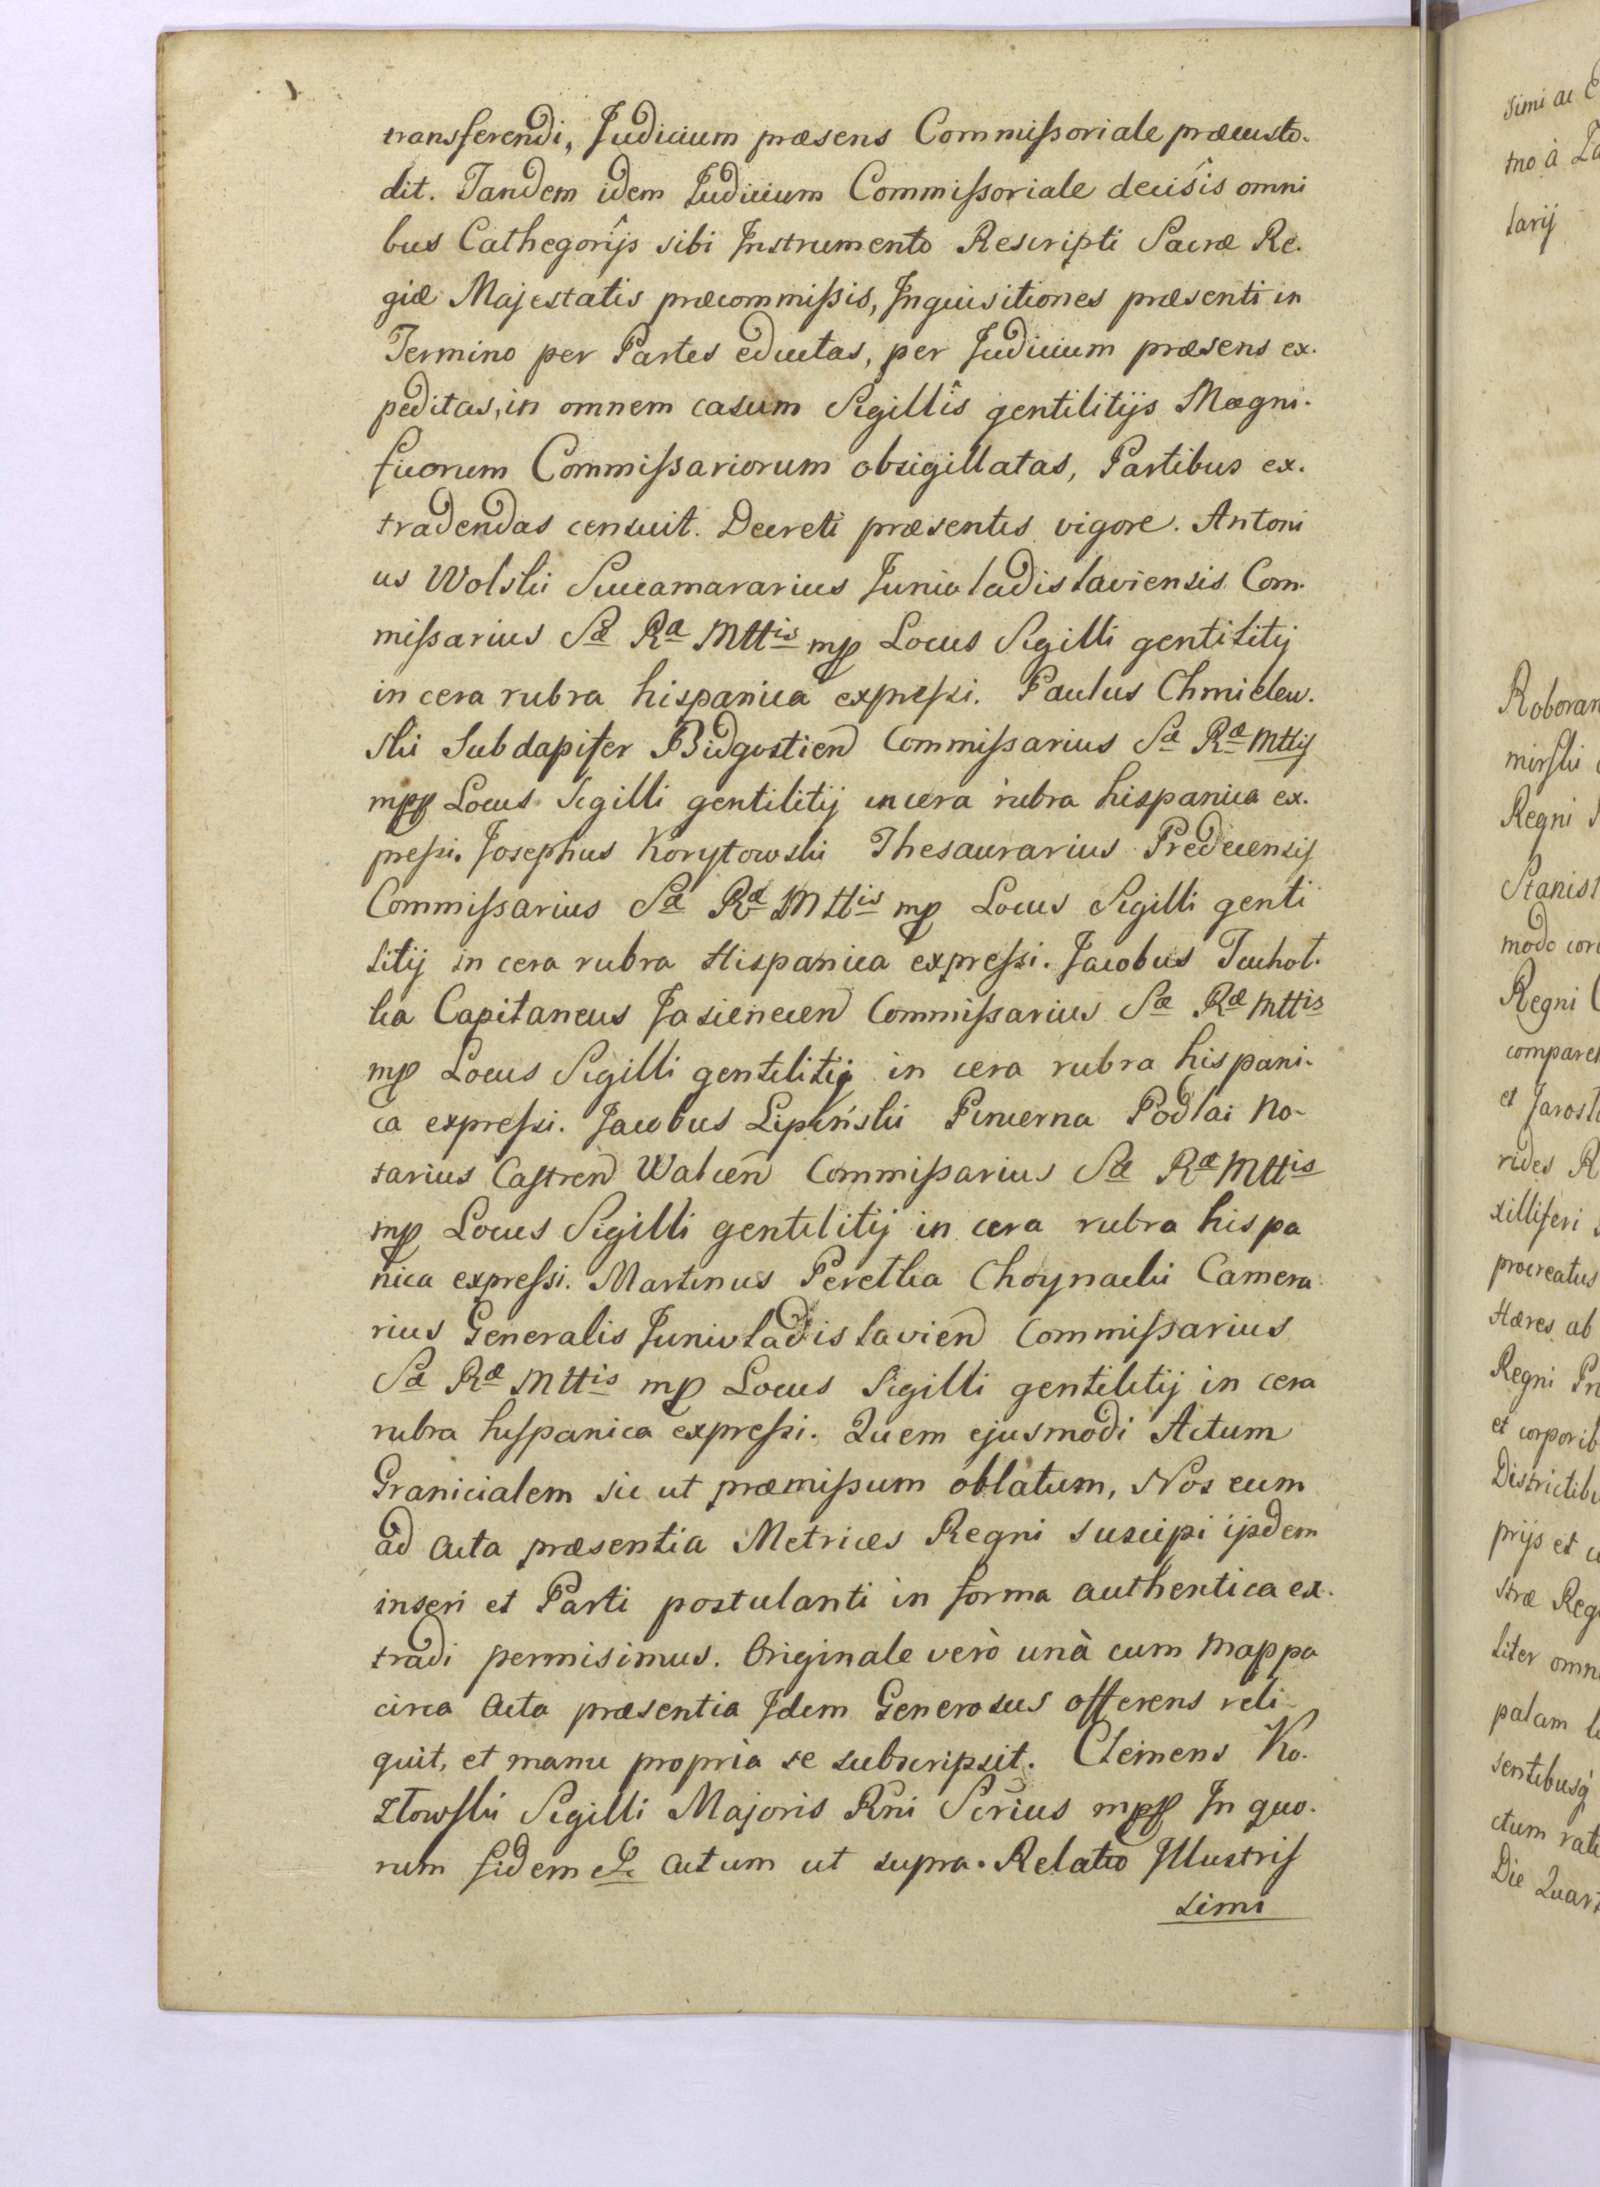 transferendi, Judicium præsens Commissoriale præcusto-
dit. Tandem idem Judicium Commissoriale decisis omni
bus Cathegorijs sibi Instrumento Rescripti Sacræ Re-
giæ Majestatis præcommissis, Inquisitiones præsenti in
Termino per Partes eductas, per Judicium præsens ex-
peditas, in omnem casum Sigillis gentilitijs Magni-
ficorum Commissariorum obsigillatas, Partibus ex-
tradendas censuit. Decreti præsentis vigore. Antoni
us Wolski Succamararius Junivladislaviensis Com-
missarius Sæ Ræ Mttis mp Locus Sigilli gentilitij
in cera rubra hispanica expressi. Paulus Chmielew-
ski Subdapifer Bidgostien Commissarius Sæ Ræ Mttis
mpp Locus Sigilli gentilitij in cera rubra hispanica ex-
pressi. Josephus Korytowski Thesaurarius Predecensis
Commissarius Sæ Ræ Mttis mp Locus Sigilli genti
litij in cera rubra Hispanica expressi. Jacobus Tuchol-
ka Capitaneus Jasienecen Commissarius Sæ Ræ Mttis
mp Locus Sigilli gentilitij in cera rubra hispani-
ca expressi. Jacobus Lipiński Pincerna Podlai No-
tarius Castren Walcen Commissarius Sæ Ræ Mttis
mp Locus Sigilli gentilitij in cera rubra hispa
nica expressi. Martinus Peretka Choynacki Camera
rius Generalis Junivladislavien Commissarius
Sæ Ræ Mttis mp Locus Sigilli gentilitij in cera
rubra hispanica expressi. Quem ejusmodi Actum
Granicialem sic ut præmissum oblatum, Nos eum
ad Acta præsentia Metrices Regni suscipi ijsdem
inseri et Parti postulanti in forma authentica ex-
tradi permisimus. Originale verò unà cum Mappa
circa Acta præsentia Idem Generosus offerens reli-
quit, et manu propria se subscripsit. Clemens Ko-
złowski Sigilli Majoris Rni Scrius mpp In quo-
rum fidem &c. Actum ut supra. Relatio Illustris
simi
simi ac
mo à
tarij
Roboran
mirski
Regni
Stanisl
modo
Regni
compare
et Jarosl
rides
xilliferi
procreatus
Hæres ab
Regni
et corporib
Districtib
prijs et
stræ Reg
liter omn
palam
sentibusq
ctum rat
Die Quart